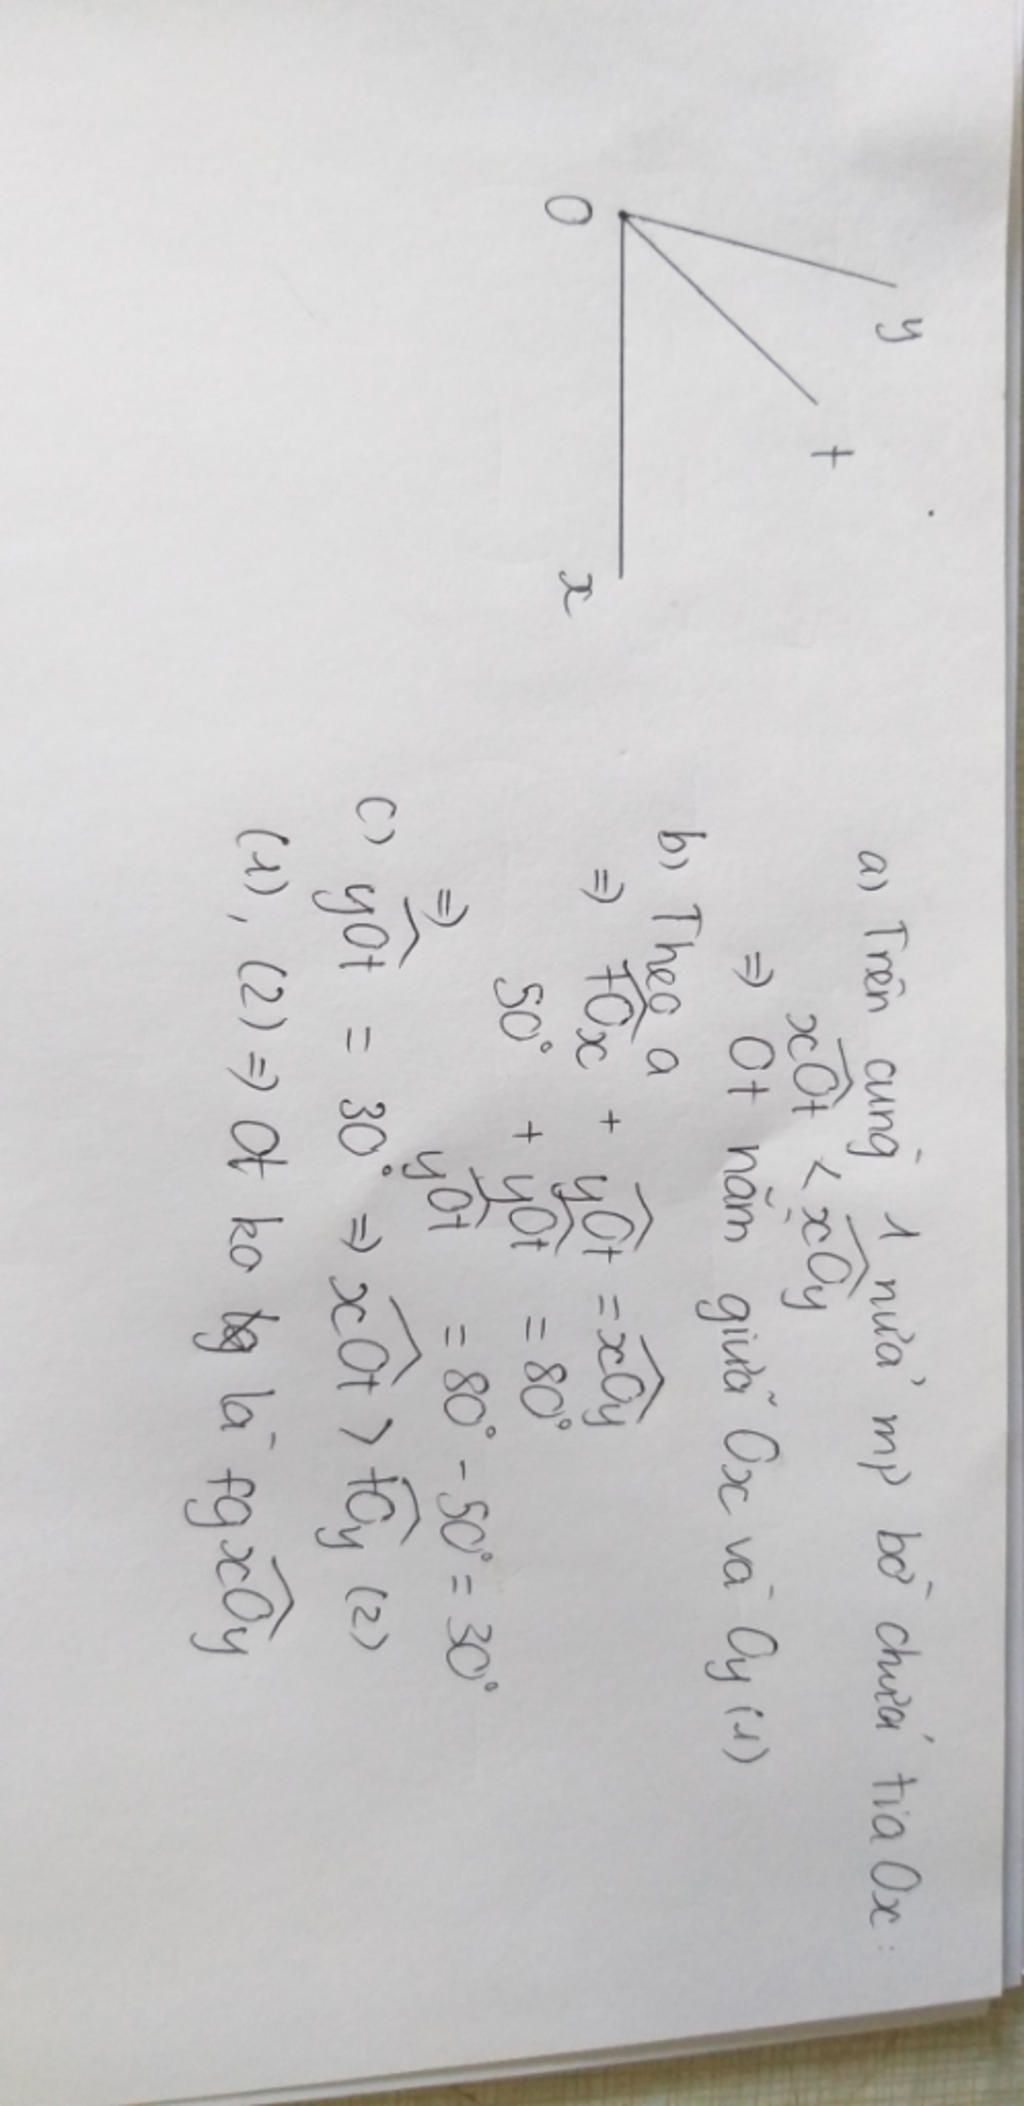 y
t
O
x
a) Trên cùng 1 nửa mp bờ chứa tia Ox:
xOt < xOy
⇒ Ot nằm giữa Ox và Oy (1)
b) Theo a
⇒ tOx + yOt = xOy
50° + yOt = 80°
⇒ yOt = 80° - 50° = 30°
c) yOt = 30° ⇒ xOt > tOy (2)
(1), (2) ⇒ Ot ko là fg xOy